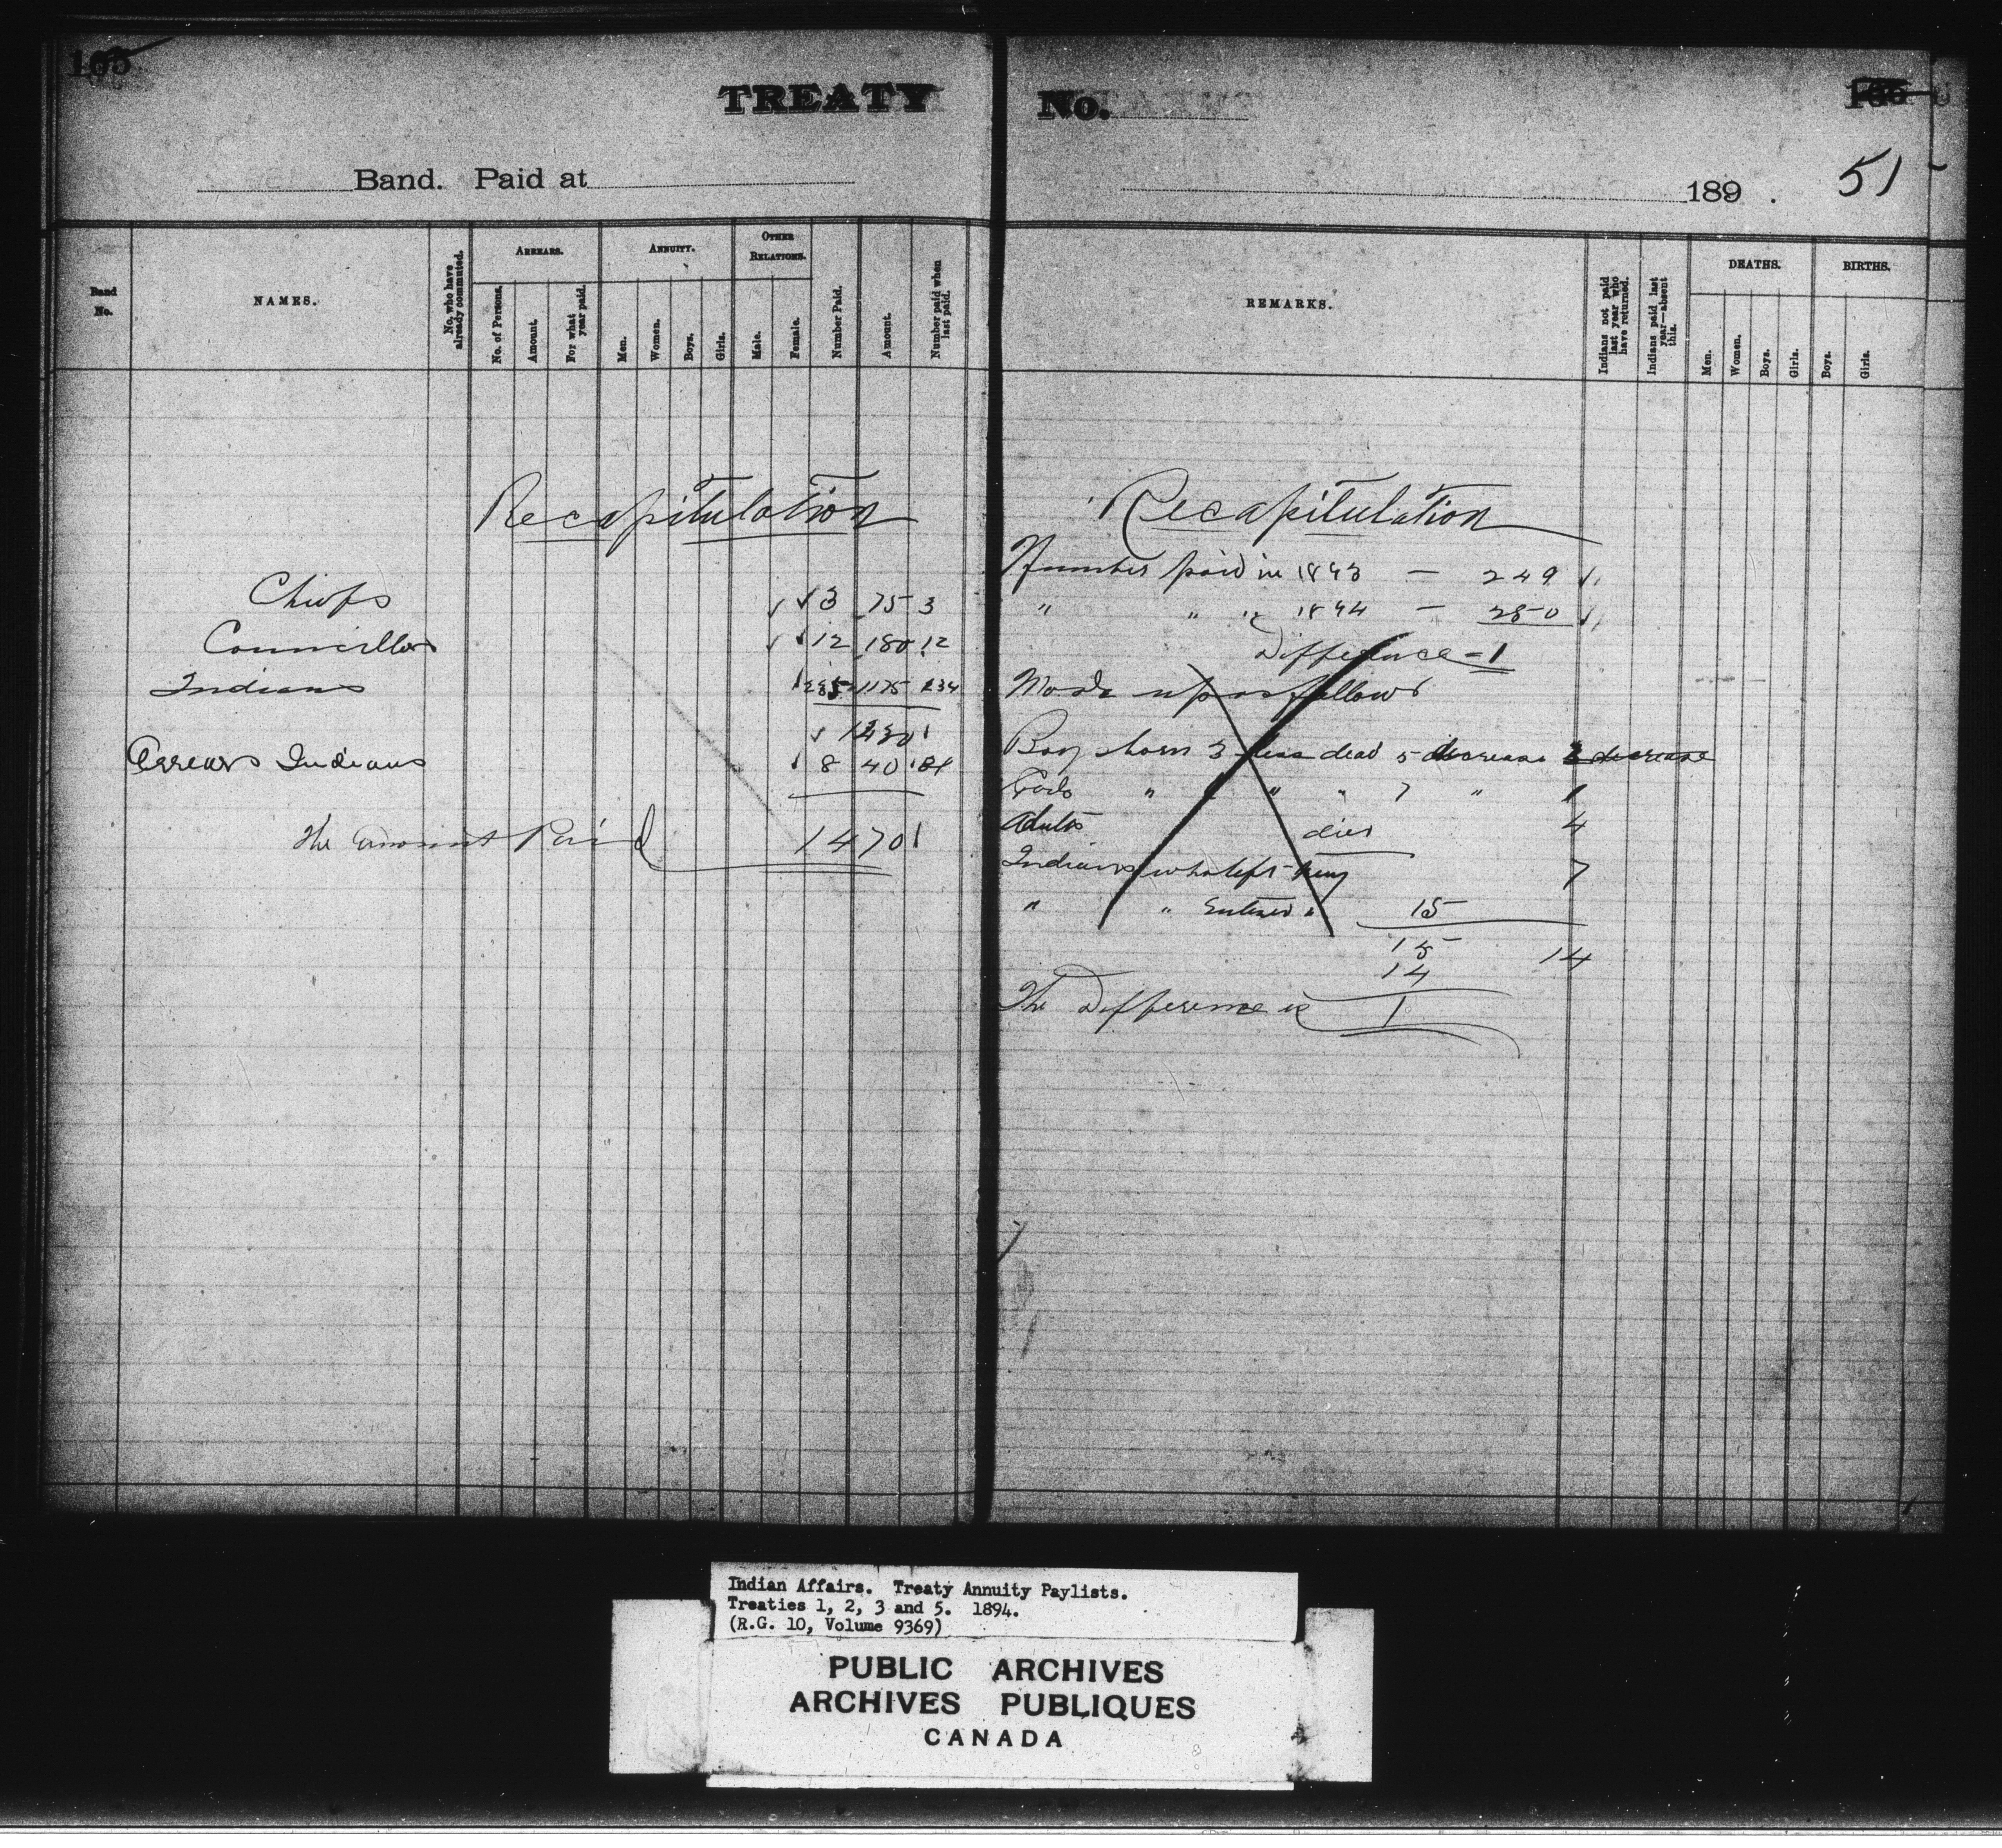 165
TREATY
No.
Band. Paid at
189 .
51
Band No.
NAMES.
No. who have already commuted.
ARREARS.
No. of Persons.
Amount.
For what year paid.
ANNUITY.
Men.
Women.
Boys.
Girls.
OTHER RELATIONS.
Male.
Female.
Number Paid.
Amount.
Number paid when last paid.
REMARKS.
Indians not paid last year who have returned.
Indians paid last year—absent this.
DEATHS.
Men.
Women.
Boys.
Girls.
BIRTHS.
Boys.
Girls.
Recapitulation
Chiefs 3 75 3
Councillors 12 180 12
Indians 235 1175 234
1430
Arrears Indians 8 40
The amount Paid 1470
Recapitulation
Number paid in 1893 — 249
" " " 1894 — 250
Difference = 1
Made up as follows
Boys born 3 less dead 5 decrease 2 decrease
Girls " " " 7 "
Adults died 4
Indians who left Treaty 7
" " Entered " 15
15 14
14
The Difference is 1
Indian Affairs. Treaty Annuity Paylists.
Treaties 1, 2, 3 and 5. 1894.
(R.G. 10, Volume 9369)
PUBLIC ARCHIVES
ARCHIVES PUBLIQUES
CANADA